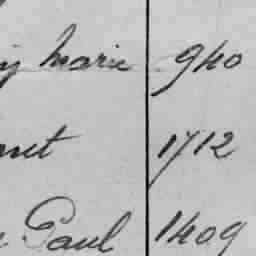 y Marie 940
1712
Paul 1409